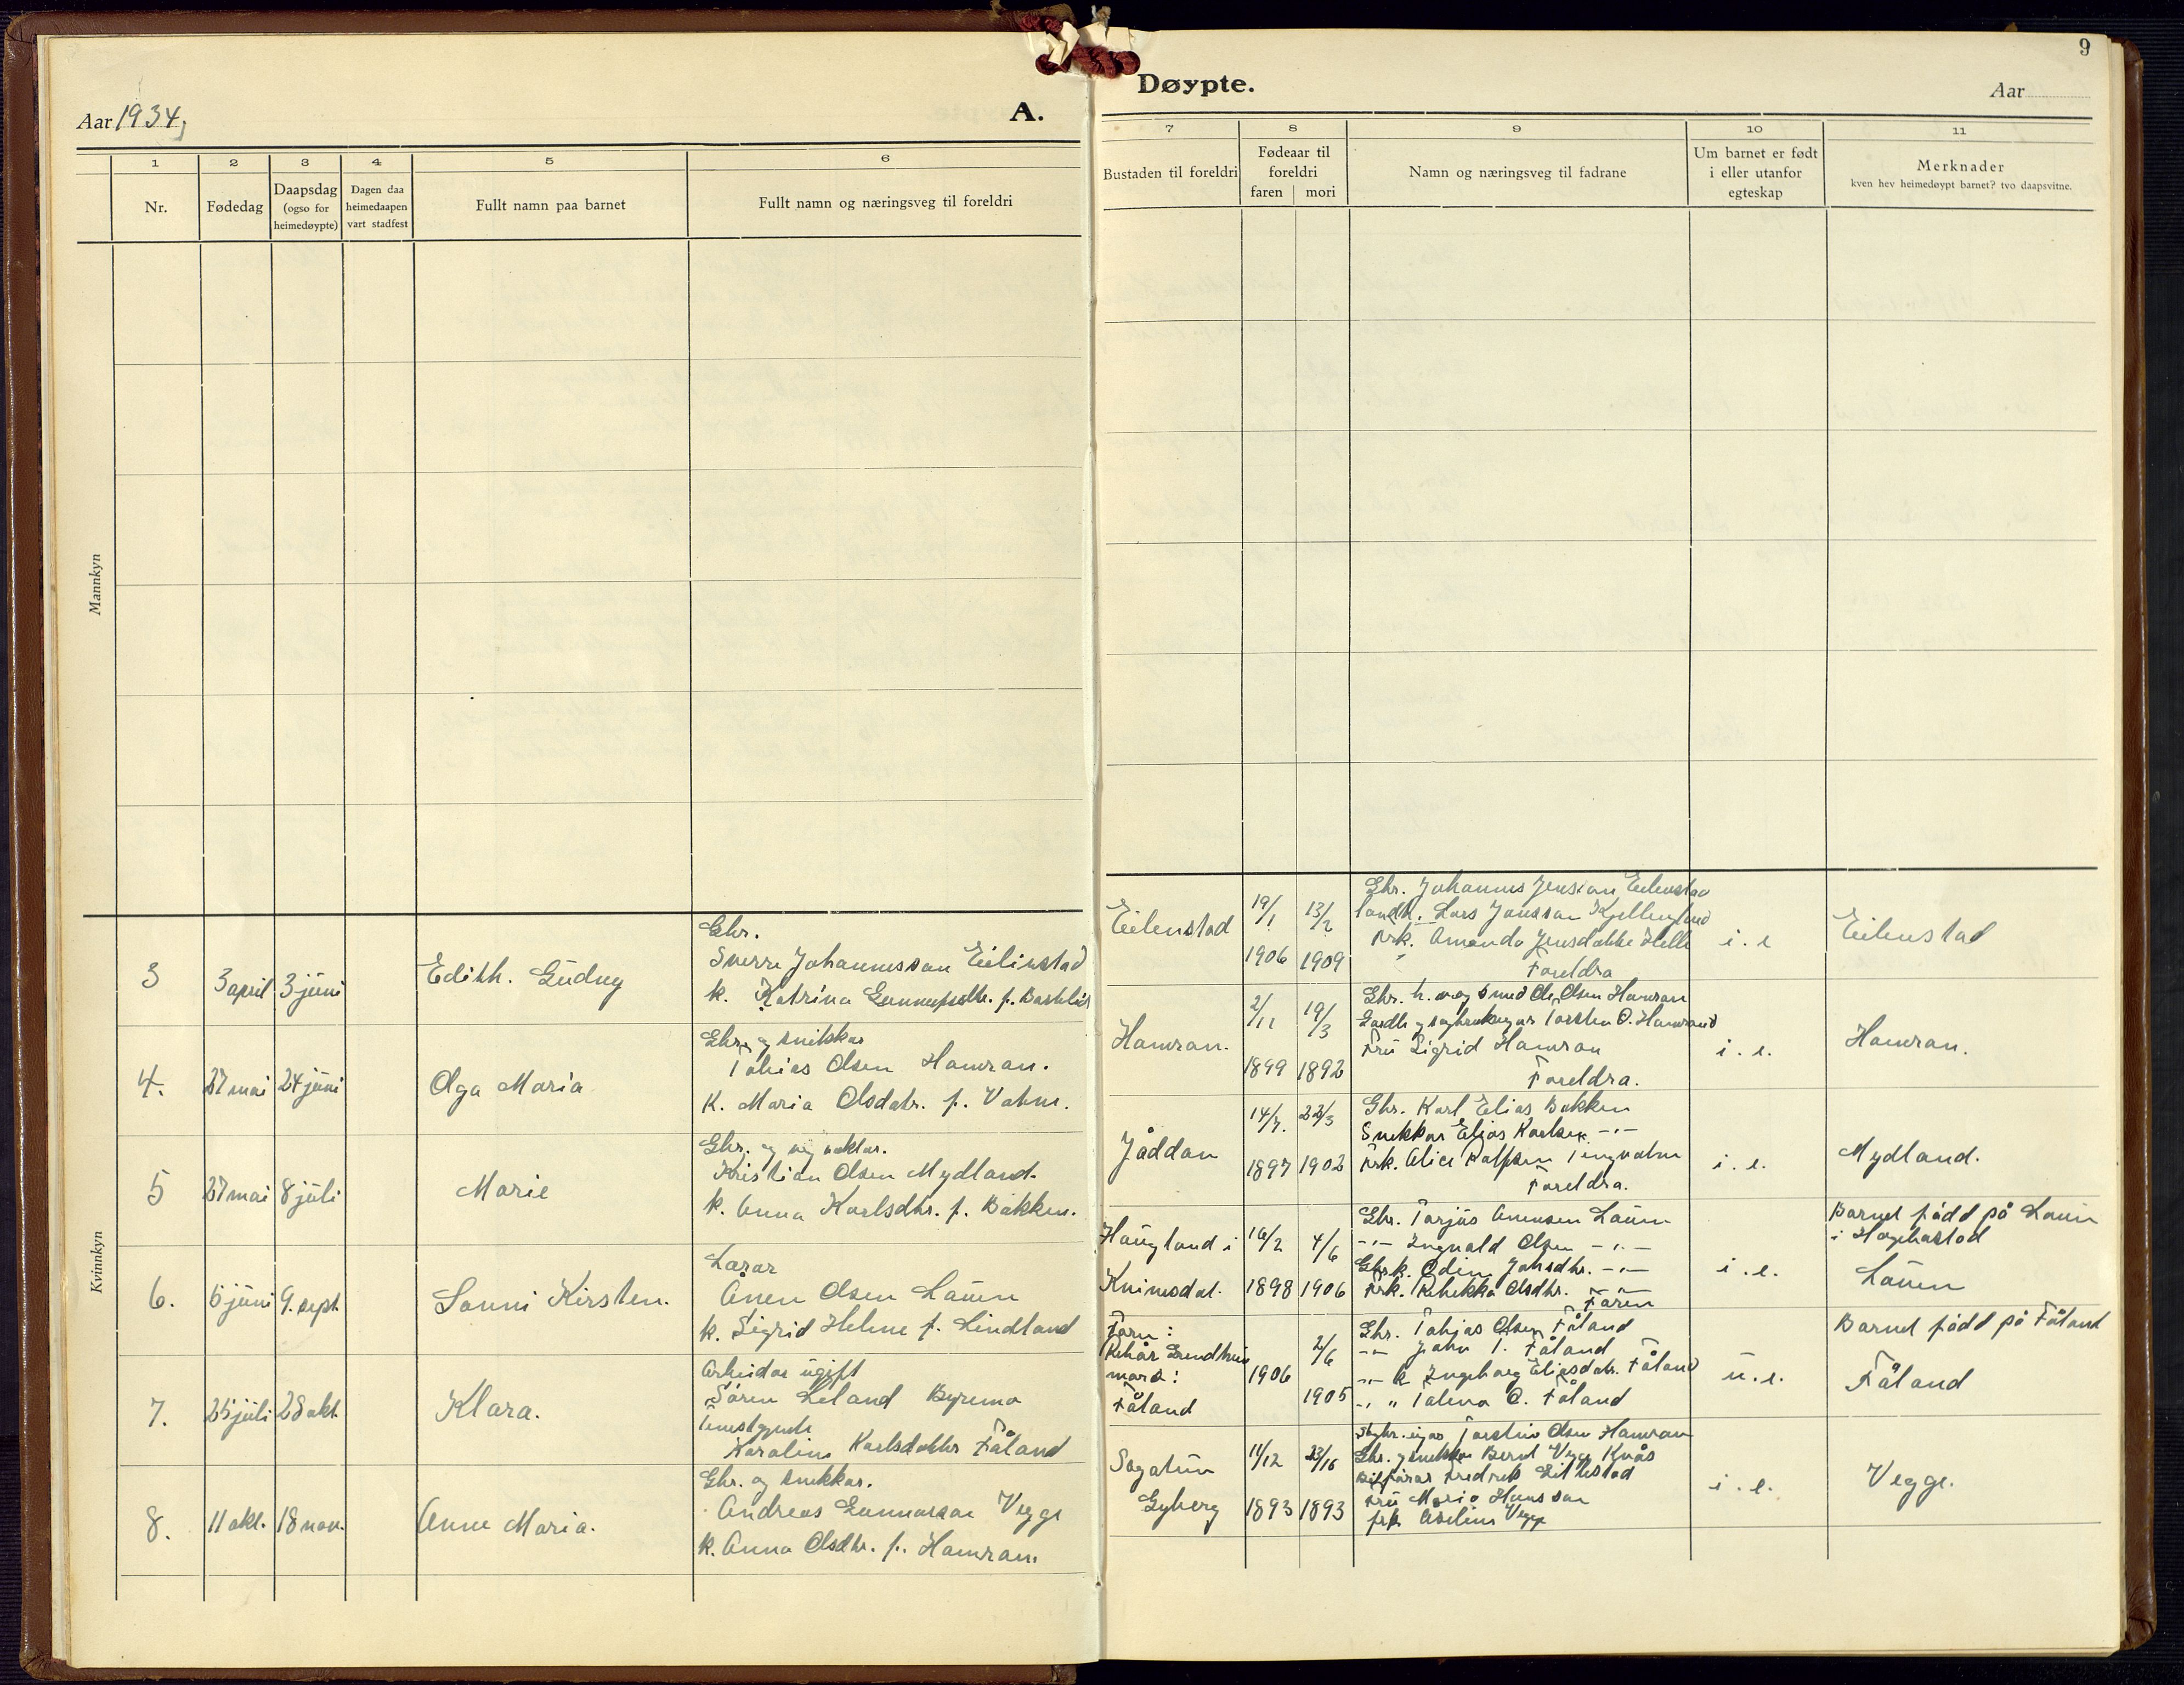 9
Døypte.
Aar 1934
A.
Aar
1
2
3
4
5
6
7
8
9
10
11
Nr.
Fødedag
Daapsdag
(ogso for
heimedøypte)
Dagen daa
heimedaapen
vart stadfest
Fullt namn paa barnet
Fullt namn og næringsveg til foreldri
Bustaden til foreldri
Fødeaar til
foreldri
faren | mori
Namn og næringsveg til fadrane
Um barnet er født
i eller utanfor
egteskap
Merknader
kven hev heimedøypt barnet? tvo daapsvitne.
Mannkyn
Kvinnkyn
3
3 april
3 júni
Edith. Gúdny
Gbr.
Sverre Johannesson Eilinstad
k. Katrina
Eilenstad
19/1
1906
13/2
1909
Gbr. Johannes Jensson Eilenstad
Lars Jonsson
frk. Amanda Jensdotter Helle
Foreldra
i. e
Eilenstad
4.
27 mai
24 júni
Olga Maria
Gbr. og snikkar
Tobias Olsen Hamran.
k. Maria Olsdatr. f. Vatne.
Hamran.
2/11
1899
19/3
1892
Gbr. h. og smed Ole Olsen Hamran
Torsten O. Hamrand
Frú Sigrid Hamran
Foreldra.
i. e.
Hamran.
5
27 mai
8 júli
Marie
Gbr. og vegvaktar.
Kristian Olsen Mydland.
k. Anna Karlsdtr. f. Bakken.
Jåddan
14/7.
1897
22/3
1902
Gbr. Karl Elias Bakken
Snekkar Elias Karlsen -"-
Frk. Alice Ralfsen Tengvatne
Foreldra.
i. e.
Mydland.
6.
6 júni
9. sept.
Sonni Kirsten.
Lærar
Ånen Olsen Laúen
k. Sigrid Helene f. Lindland
Haúgland i
Kvinesdal.
16/2
1898
4/6
1906
Gbr. Tarjús Ånensen Laúen
-"- Ingvald Olsen -"-
Gbrk. Odine Jahsdtr. -"-
Frk. Rebekka Olsdtr. -"-
Faren
i. e.
Barnet fødd på Laúen
i Hægebostad
Laúen
7.
25 júli
28 okt.
Klara.
Arbeidar úgift
Søren Leland Byremo
Tenestgjente
Karoline Karlsdotter Fåland
Faren:
mora:
Fåland
1906
2/6
1905
Gbr. Tobjas Olsen Fåland
-"- John T. Fåland
-"- k Ingeborg Eliasdatr. Fåland
-" " Talena O. Fåland
ú. e.
Barnet fødd på Fåland
Fåland
8.
11 okt.
18 nov.
Anne Maria.
Gbr. og snekkar.
Andreas Gunnarson Vegge
k. Anna Olsdtr. f. Hamran.
Sogatún
Gyberg
11/12
1893
1893
Torstein Olsen Hamran
Gbr. og snekkar Bernt Vegge Kvås
Bilførar Fredrik Eilestad
Frú Marie Hansson
frk. Åseline Vegge
i. e.
Vegge.